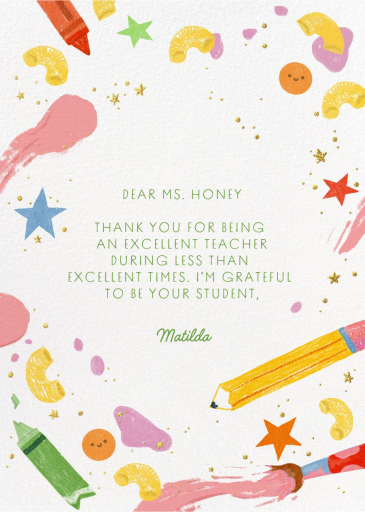 DEAR MS. HONEY
THANK YOU FOR BEING
AN EXCELLENT TEACHER
DURING LESS THAN
EXCELLENT TIMES. I'M GRATEFUL
TO BE YOUR STUDENT,
Matilda